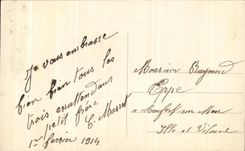 Je vous embrasse
bien bien tous les
trois en attendant
petit frère
E.
1er février 1914
Monsieur Raymond
Eppe
a Montfort sur Meu
Ille et Vilaine